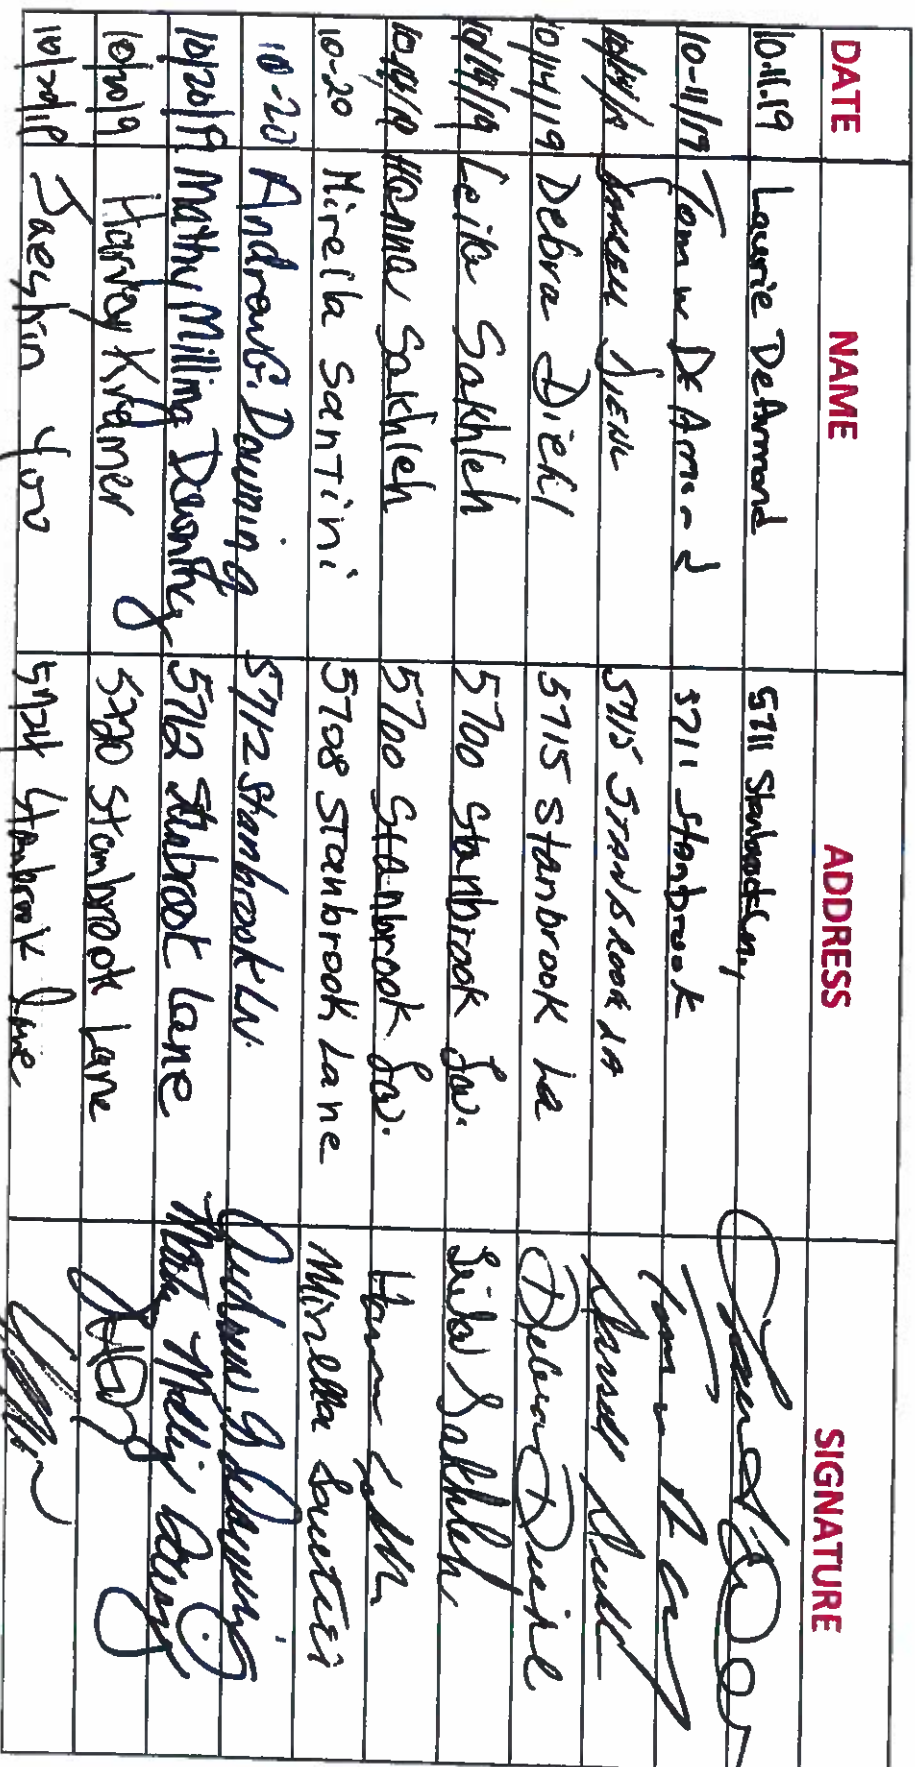 DATE NAME ADDRESS SIGNATURE
10.11.19 Laurie DeArmond 5711 Stanbrook Ln,
10-11/19 Tom w DeArmond 5711 Stanbrook
10/14/19 5715 STANBROOK LA
10/14/19 Debra Diehl 5715 Stanbrook La Debra Diehl
10/19/19 Leila Sakhleh 5700 Stanbrook Ln. Leila Sakhleh
Hanna Sakhleh 5700 Stanbrook Ln.
10-20 Mirella Santini 5708 Stanbrook Lane Mirella Santini
10-20 Andrew G. Downing 5712 Stanbrook LN. Andrew G Downing
10/20/19 Milling 5712 Stanbrook Lane
10/20/19 Harvey Kramer 5720 Stanbrook Lane
Jaeshin Yoo 5724 Stanbrook Lane